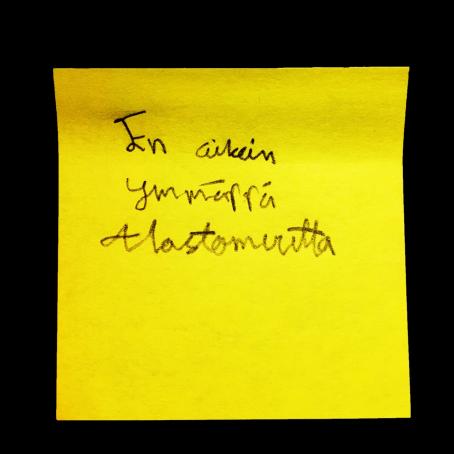 En aikein
ymmärrä
Alastomuutta